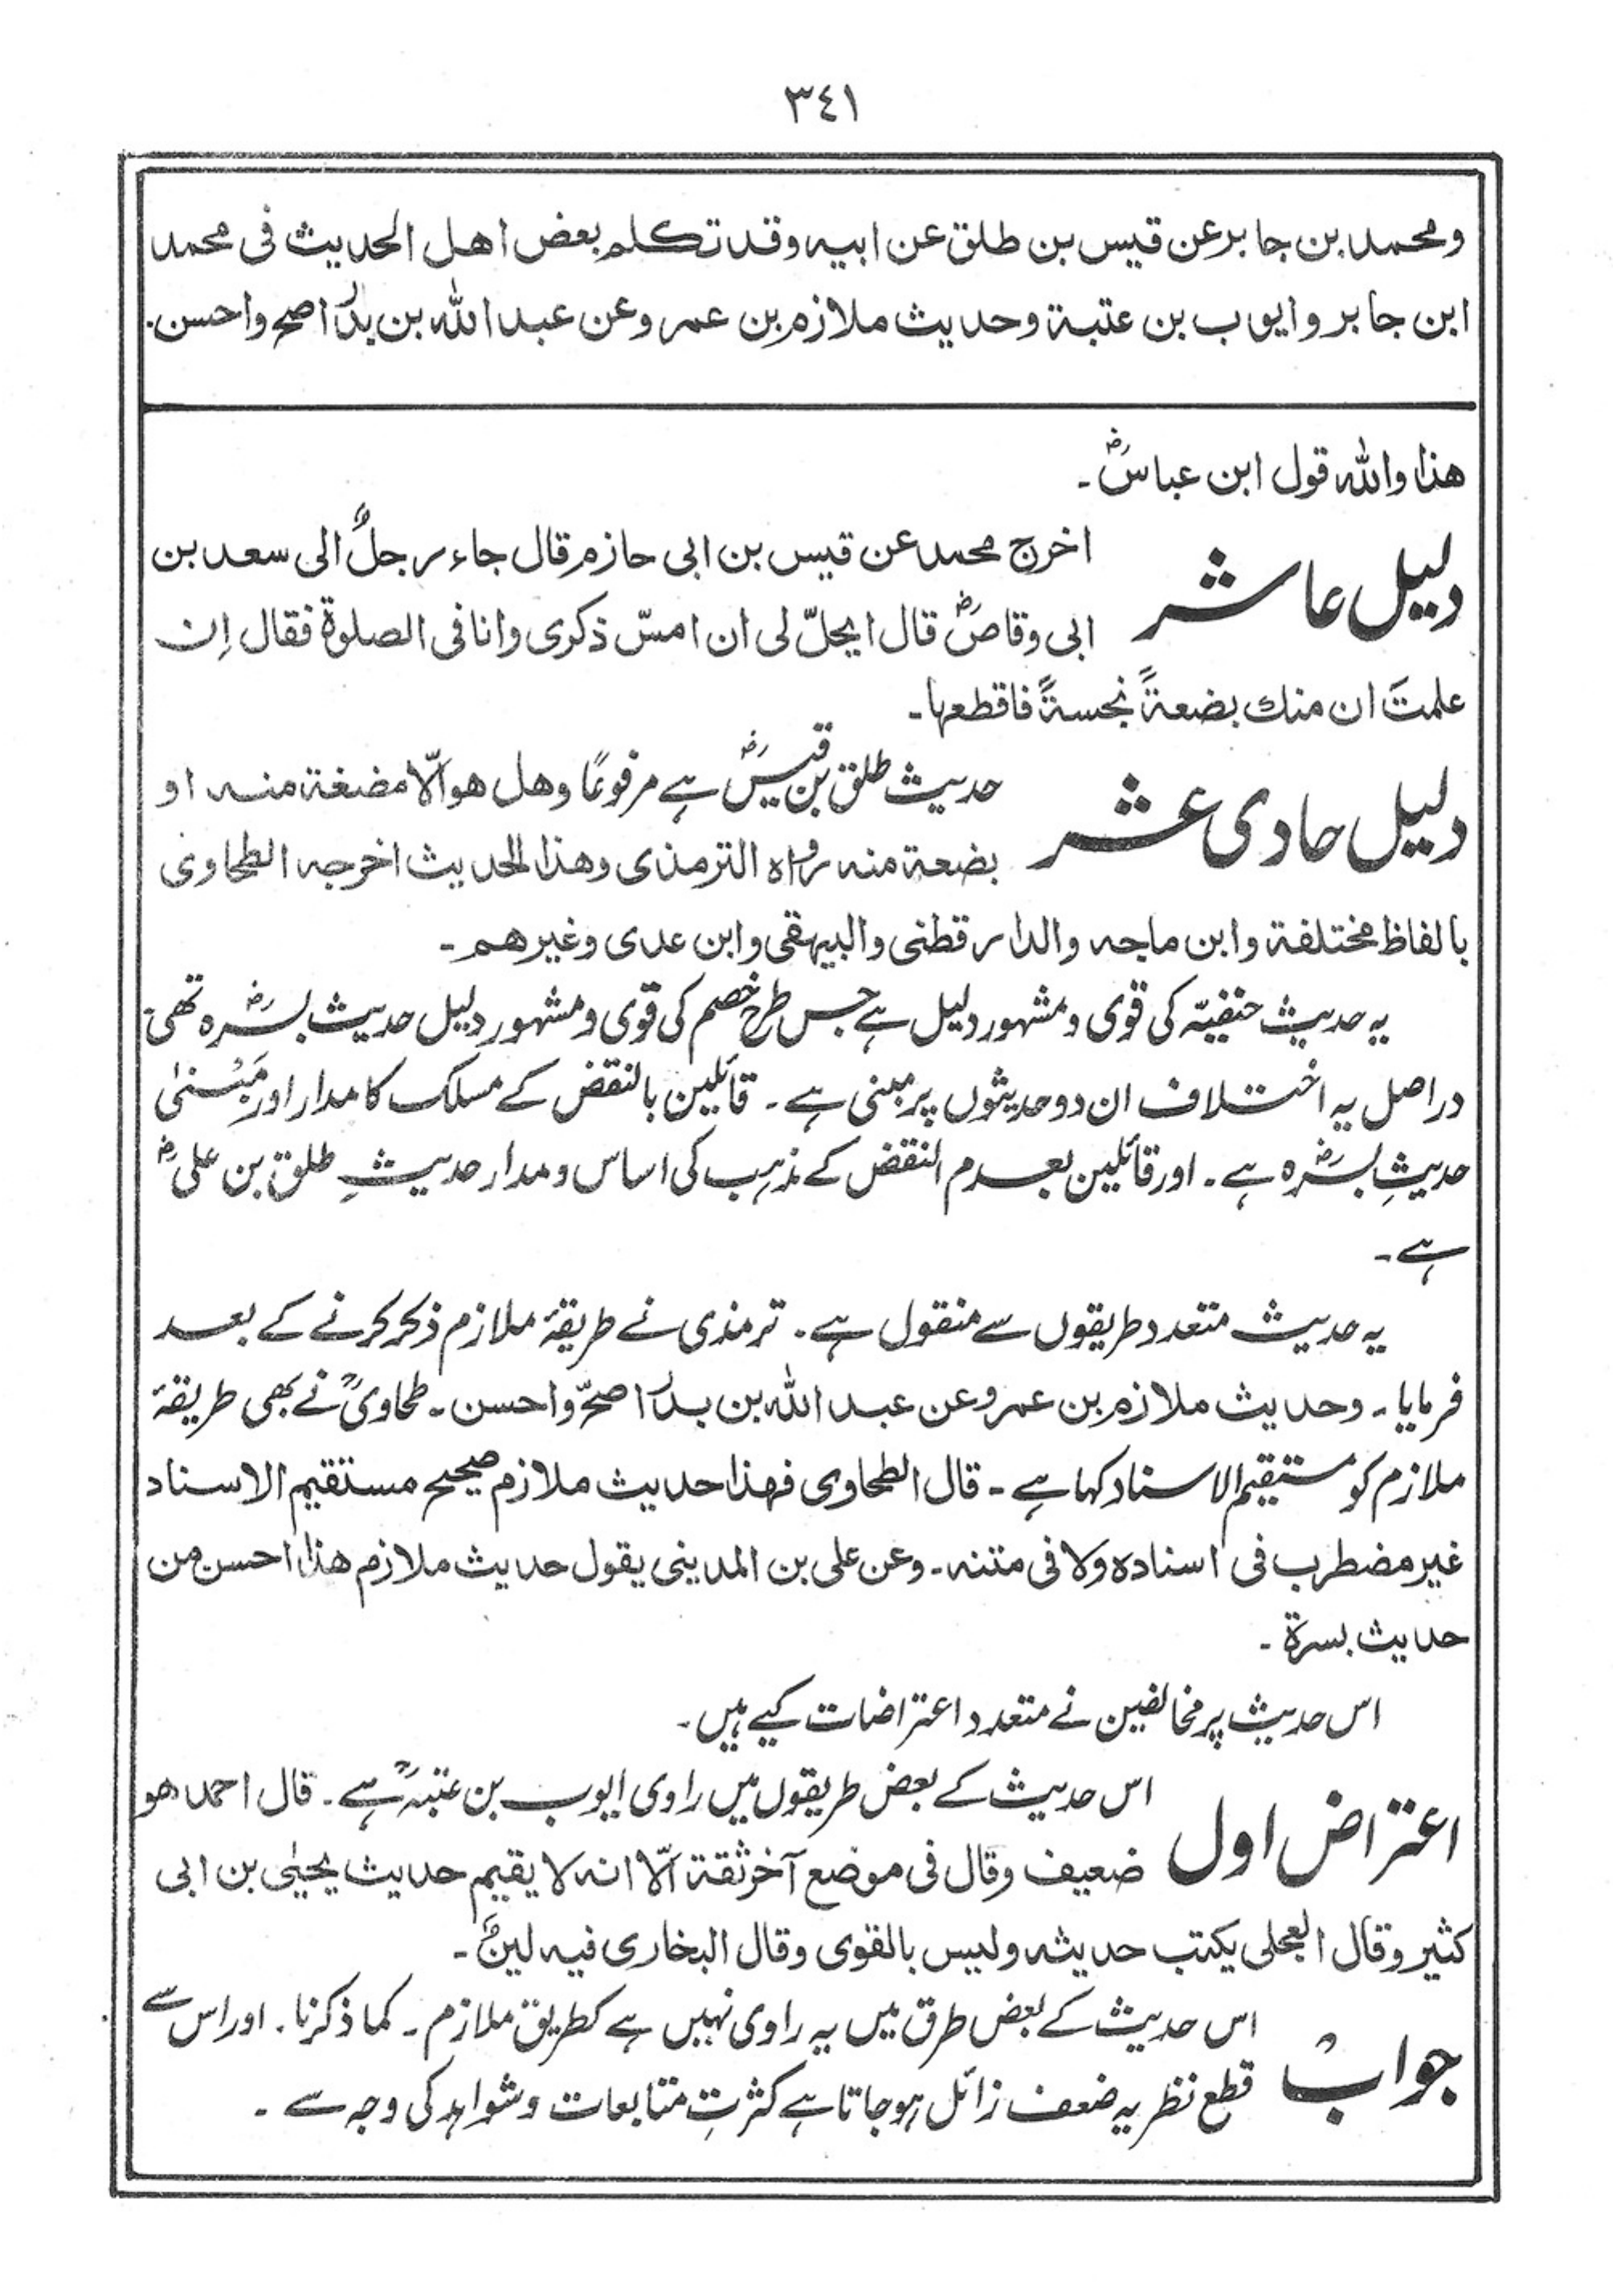 ٣٤١
ومحمد بن جابر عن قيس بن طلق عن ابيه وقد تكلم بعض اهل الحديث فى محمد
ابن جابر وايوب بن عتبة وحديث ملازم بن عمرو عن عبد الله بن بدرٍ اصح واحسن.
هذا والله قول ابن عباسؓ۔
دلیل عاشر
اخرج محمد عن قيس بن ابى حازم قال جاء رجلٌ الى سعد بن
ابى وقاصؓ قال ايحلّ لى ان امسّ ذكرى وانا فى الصلوة فقال اِن
علمتَ ان منك بضعةً نجسةً فاقطعها۔
دلیل حادی عشر
حدیث طلق بن قیسؓ ہے مرفوعًا وهل هو الّا مضغة منه او
بضعة منه رواه الترمذى وهذا الحديث اخرجه الطحاوى
بالفاظ مختلفة وابن ماجه والدارقطنى والبيهقى وابن عدى وغيرهم۔
یہ حدیث حنفیّہ کی قوی و مشہور دلیل ہے جس طرح خصم کی قوی و مشہور دلیل حدیث بسرہؓ تھی۔
دراصل یہ اختلاف ان دو حدیثوں پر مبنی ہے۔ قائلین بالنقض کے مسلک کا مدار اور مَبْنیٰ
حدیثِ بسرہؓ ہے۔ اور قائلین بعدم النقض کے مذہب کی اساس و مدار حدیثِ طلق بن علیؓ
ہے۔
یہ حدیث متعدد طریقوں سے منقول ہے۔ ترمذی نے طریقۂ ملازم ذکر کرنے کے بعد
فرمایا۔ وحديث ملازم بن عمرو عن عبد الله بن بدرٍ اصحّ واحسن۔ طحاویؒ نے بھی طریقۂ
ملازم کو مستقیم الاسناد کہا ہے۔ قال الطحاوى فهذا حديث ملازم صحيح مستقيم الاسناد
غير مضطرب فى اسناده ولا فى متنه۔ وعن على بن المدينى يقول حديث ملازم هذا احسن من
حديث بسرة۔
اس حدیث پر مخالفین نے متعدد اعتراضات کیے ہیں۔
اعتراض اول
اس حدیث کے بعض طریقوں میں راوی ایوب بن عتبہؒ ہے۔ قال احمد هو
ضعيف وقال فى موضع آخر ثقة الّا انه لا يقيم حديث يحيىٰ بن ابى
كثير وقال العجلى يكتب حديثه وليس بالقوى وقال البخارى فيه لينٌ۔
جواب
اس حدیث کے بعض طرق میں یہ راوی نہیں ہے کطریق ملازم۔ کما ذکرنا۔ اور اس سے
قطع نظر یہ ضعف زائل ہو جاتا ہے کثرتِ متابعات و شواہد کی وجہ سے۔